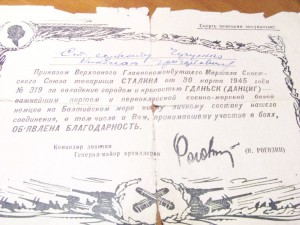 Смерть немецким оккупантам!
Приказом Верховного Главнокомандующего Маршала Совет-
ского Союза товарища СТАЛИНА от 30 марта 1945 года
№ 319 за овладение городом и крепостью ГДАНЬСК (ДАНЦИГ) —
важнейшим портом и первоклассной военно-морской базой
немцев на Балтийском море всему личному составу нашего
соединения, в том числе и Вам, принимавшему участие в боях,
ОБ'ЯВЛЕНА БЛАГОДАРНОСТЬ.
Командир дивизии
Генерал-майор артиллерии
(Н. РОГОЗИН)